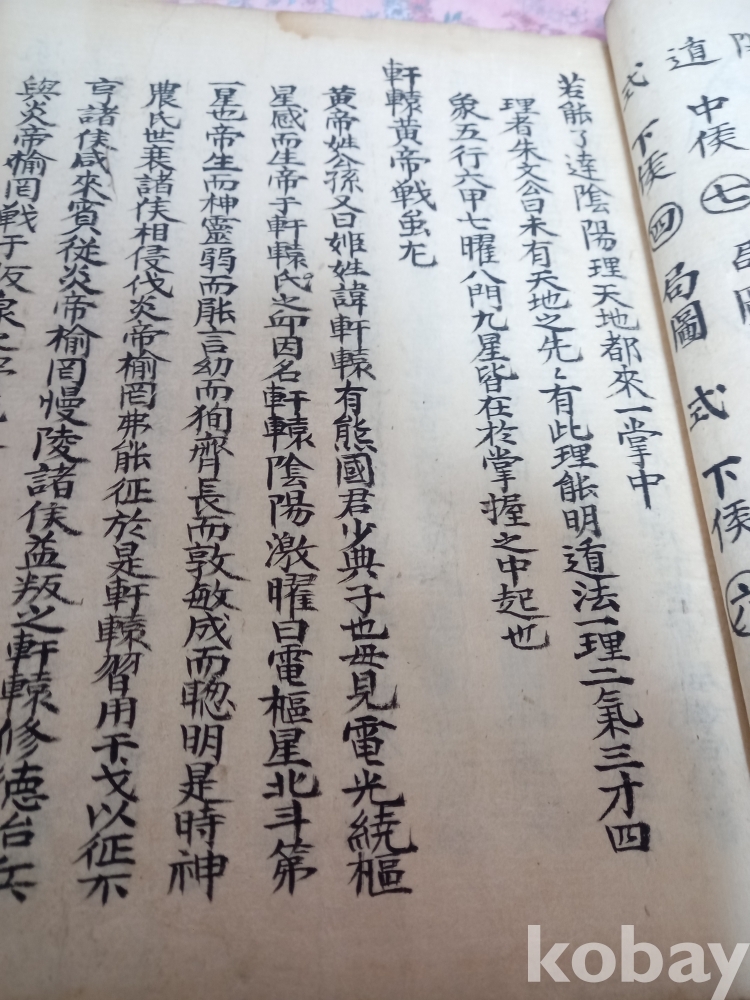 道 中侯 七 局圖
式 下侯 四 局圖 式 下侯 六
若能了達陰陽理天地都來一掌中
理者朱文公曰未有天地之先〻有此理能明道法一理二氣三才四
象五行六甲七曜八門九星皆在於掌握之中起也
軒轅黃帝戰蚩尤
黃帝姓公孫又曰姬姓諱軒轅有熊國君少典子也母見電光繞樞
星感而生帝于軒轅氏之卬因名軒轅陰陽激曜曰電樞星北斗第
一星也帝生而神靈弱而能言幼而狥齊長而敦敏成而聰明是時神
農氏世衰諸侯相侵伐炎帝榆罔弗能征於是軒轅習用干戈以征不
亨諸侯咸來賓從炎帝榆罔慢陵諸侯益叛之軒轅修德治兵
與炎帝榆罔戰于阪泉之
kobay